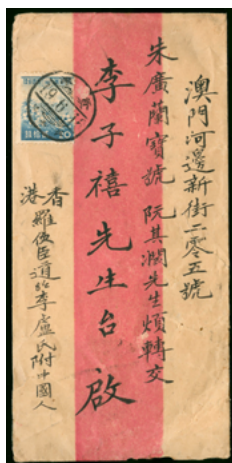 澳門河邊新街二零五號
朱廣蘭寶號 阮其澗先生煩轉交
李子禧先生台啟
香港羅伍臣道 李盧氏附中國人